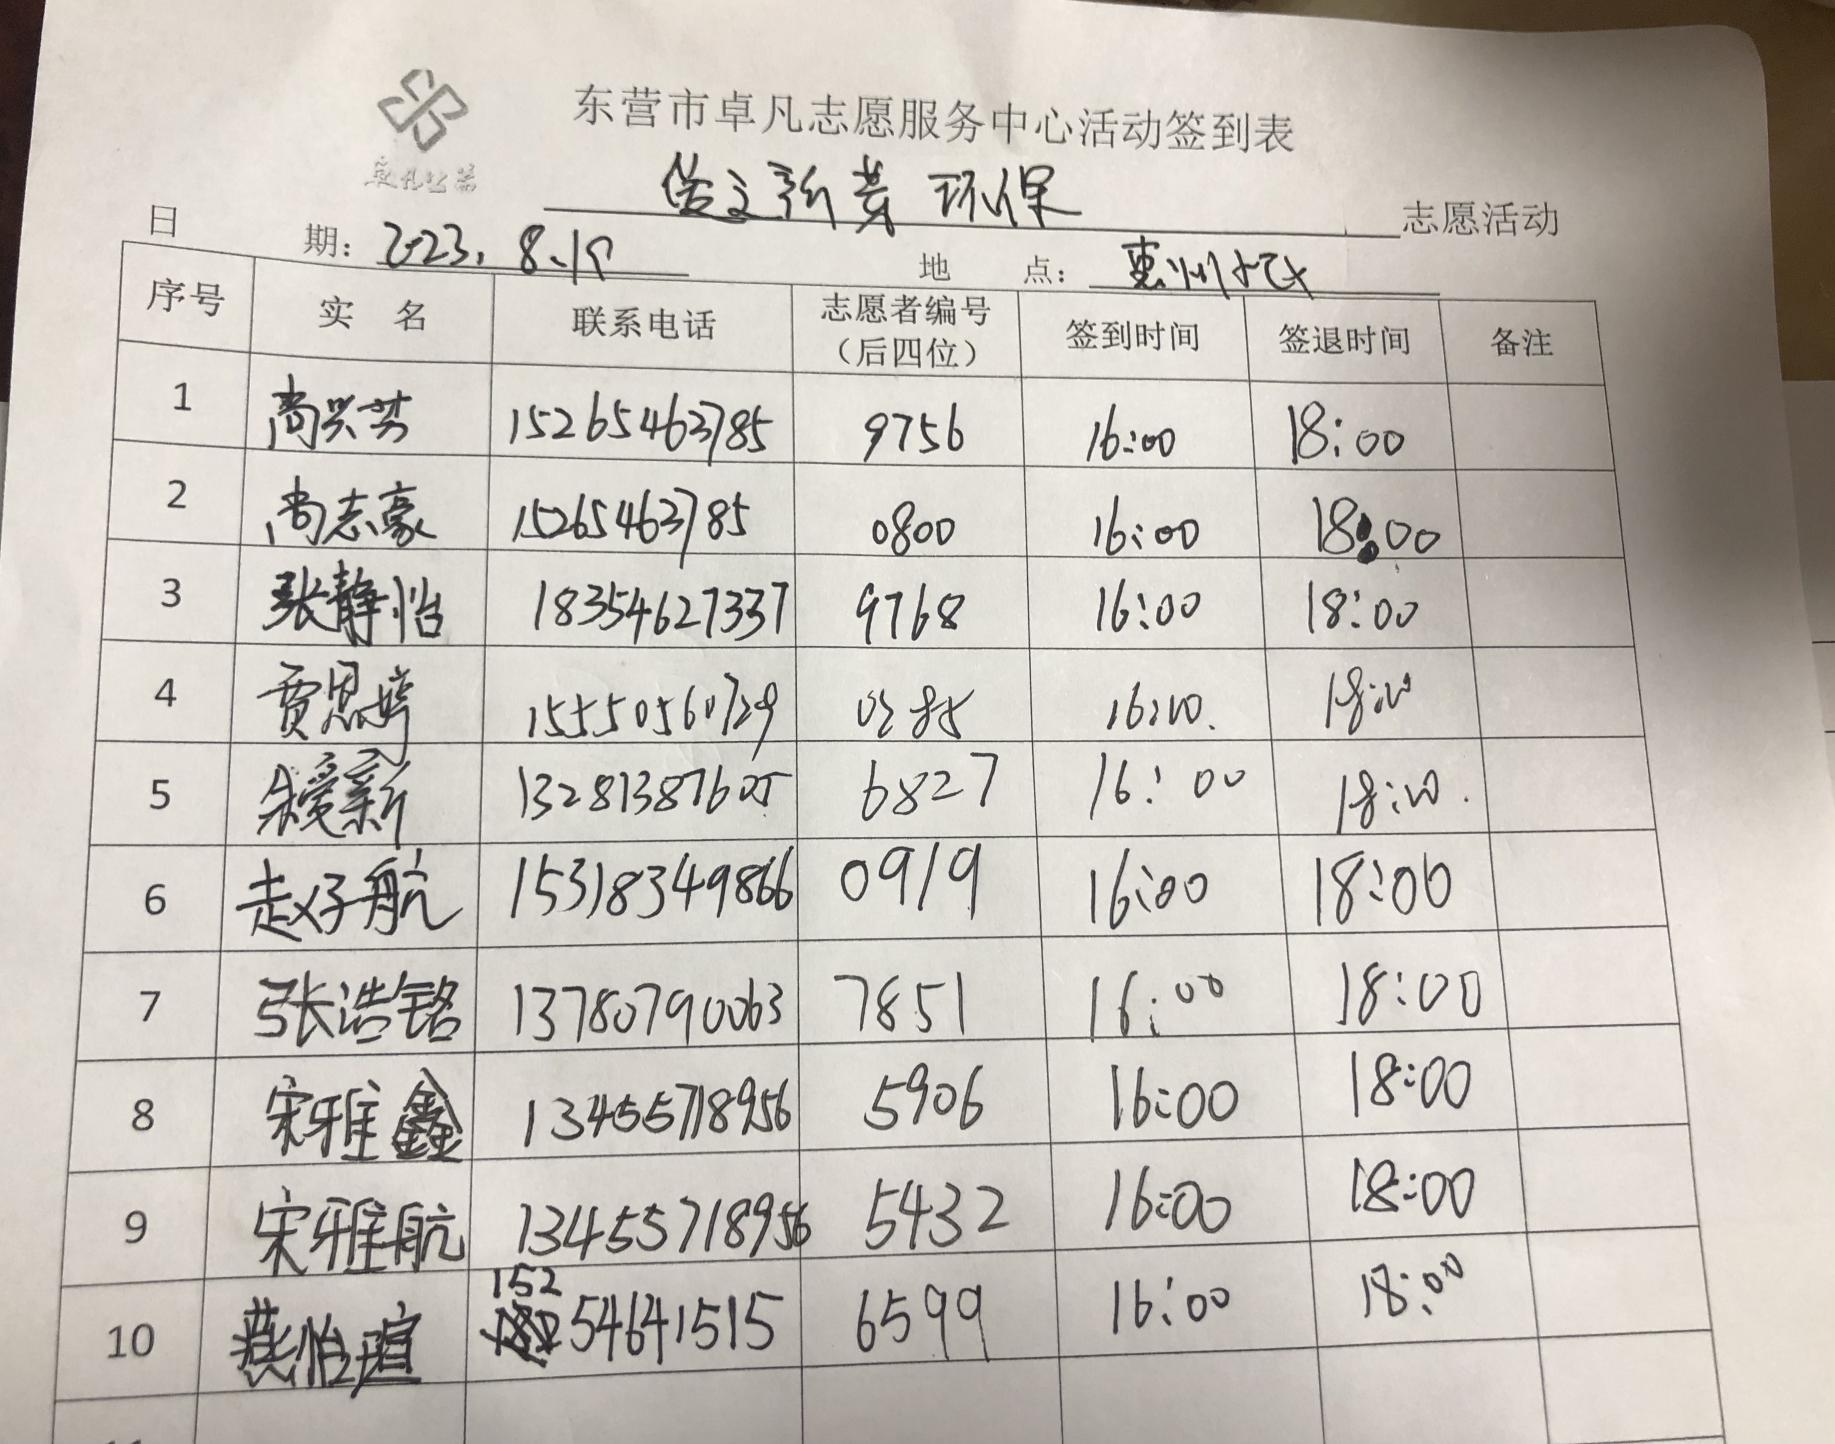 东营市卓凡志愿服务中心活动签到表
卓凡公益
环保 志愿活动
日 期：2023.8.19 地 点：惠州
序号 实 名 联系电话 志愿者编号（后四位） 签到时间 签退时间 备注
1 尚兴芳 15265463785 9756 16:00 18:00
2 尚志豪 15265463785 0800 16:00 18:00
3 张静怡 18354627337 9768 16:00 18:00
4 贾思婷 15550560729 16:00. 18:00
5 朱爱新 13281387605 6827 16:00 18:00.
6 赵子航 15318349866 0919 16:00 18:00
7 张浩铭 13780790063 7851 16:00 18:00
8 宋雅鑫 13455718956 5906 16:00 18:00
9 宋雅航 13455718956 5432 16:00 18:00
10 燕怡瑄 15254641515 6599 16:00 18:00